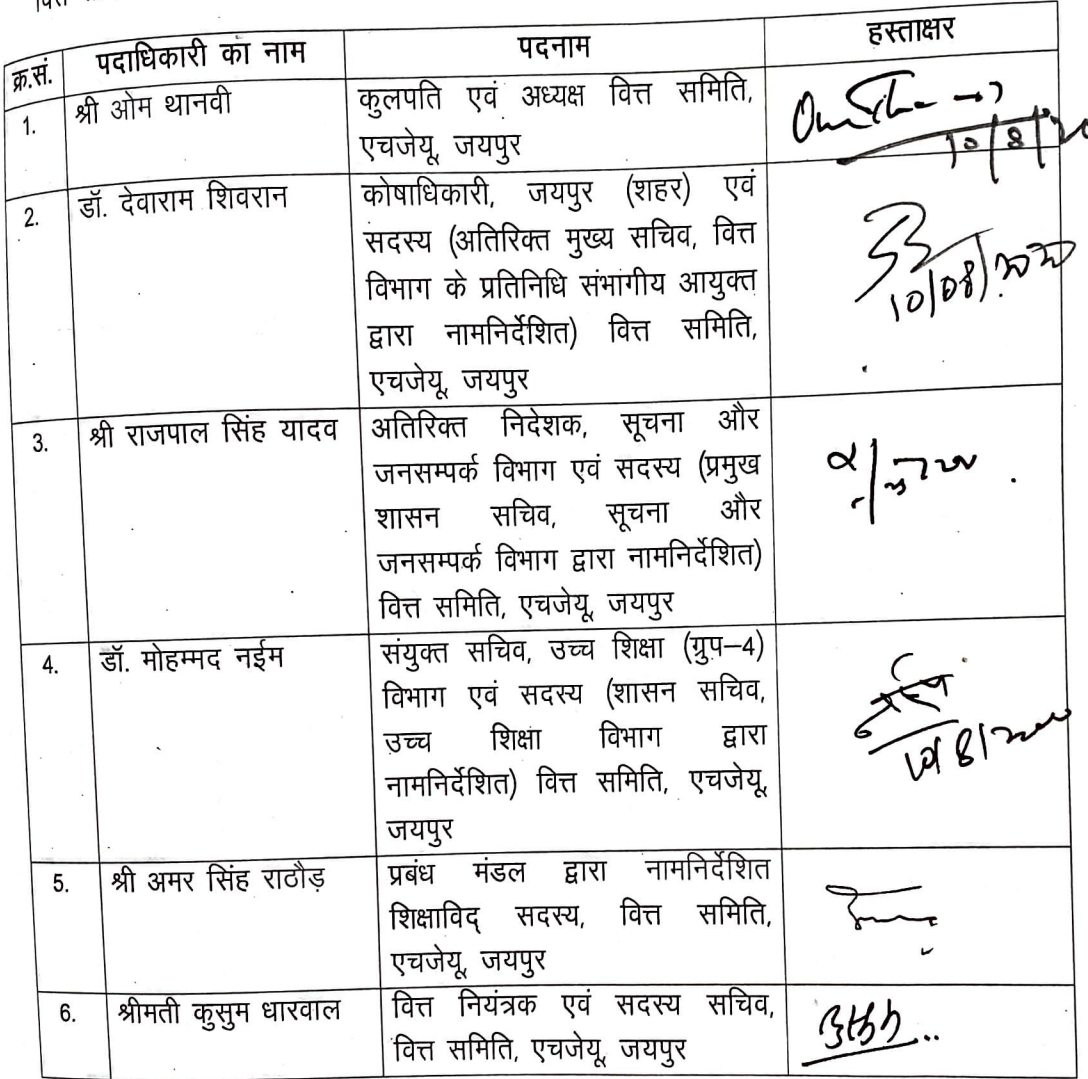 क्र.सं. पदाधिकारी का नाम पदनाम हस्ताक्षर
1. श्री ओम थानवी कुलपति एवं अध्यक्ष वित्त समिति,
एचजेयू, जयपुर
10/8/20
2. डॉ. देवाराम शिवरान कोषाधिकारी, जयपुर (शहर) एवं
सदस्य (अतिरिक्त मुख्य सचिव, वित्त
विभाग के प्रतिनिधि संभागीय आयुक्त
द्वारा नामनिर्देशित) वित्त समिति,
एचजेयू, जयपुर
10/08/2020
3. श्री राजपाल सिंह यादव अतिरिक्त निदेशक, सूचना और
जनसम्पर्क विभाग एवं सदस्य (प्रमुख
शासन सचिव, सूचना और
जनसम्पर्क विभाग द्वारा नामनिर्देशित)
वित्त समिति, एचजेयू, जयपुर
4. डॉ. मोहम्मद नईम संयुक्त सचिव, उच्च शिक्षा (ग्रुप–4)
विभाग एवं सदस्य (शासन सचिव,
उच्च शिक्षा विभाग द्वारा
नामनिर्देशित) वित्त समिति, एचजेयू,
जयपुर
5. श्री अमर सिंह राठौड़ प्रबंध मंडल द्वारा नामनिर्देशित
शिक्षाविद् सदस्य, वित्त समिति,
एचजेयू, जयपुर
6. श्रीमती कुसुम धारवाल वित्त नियंत्रक एवं सदस्य सचिव,
वित्त समिति, एचजेयू, जयपुर